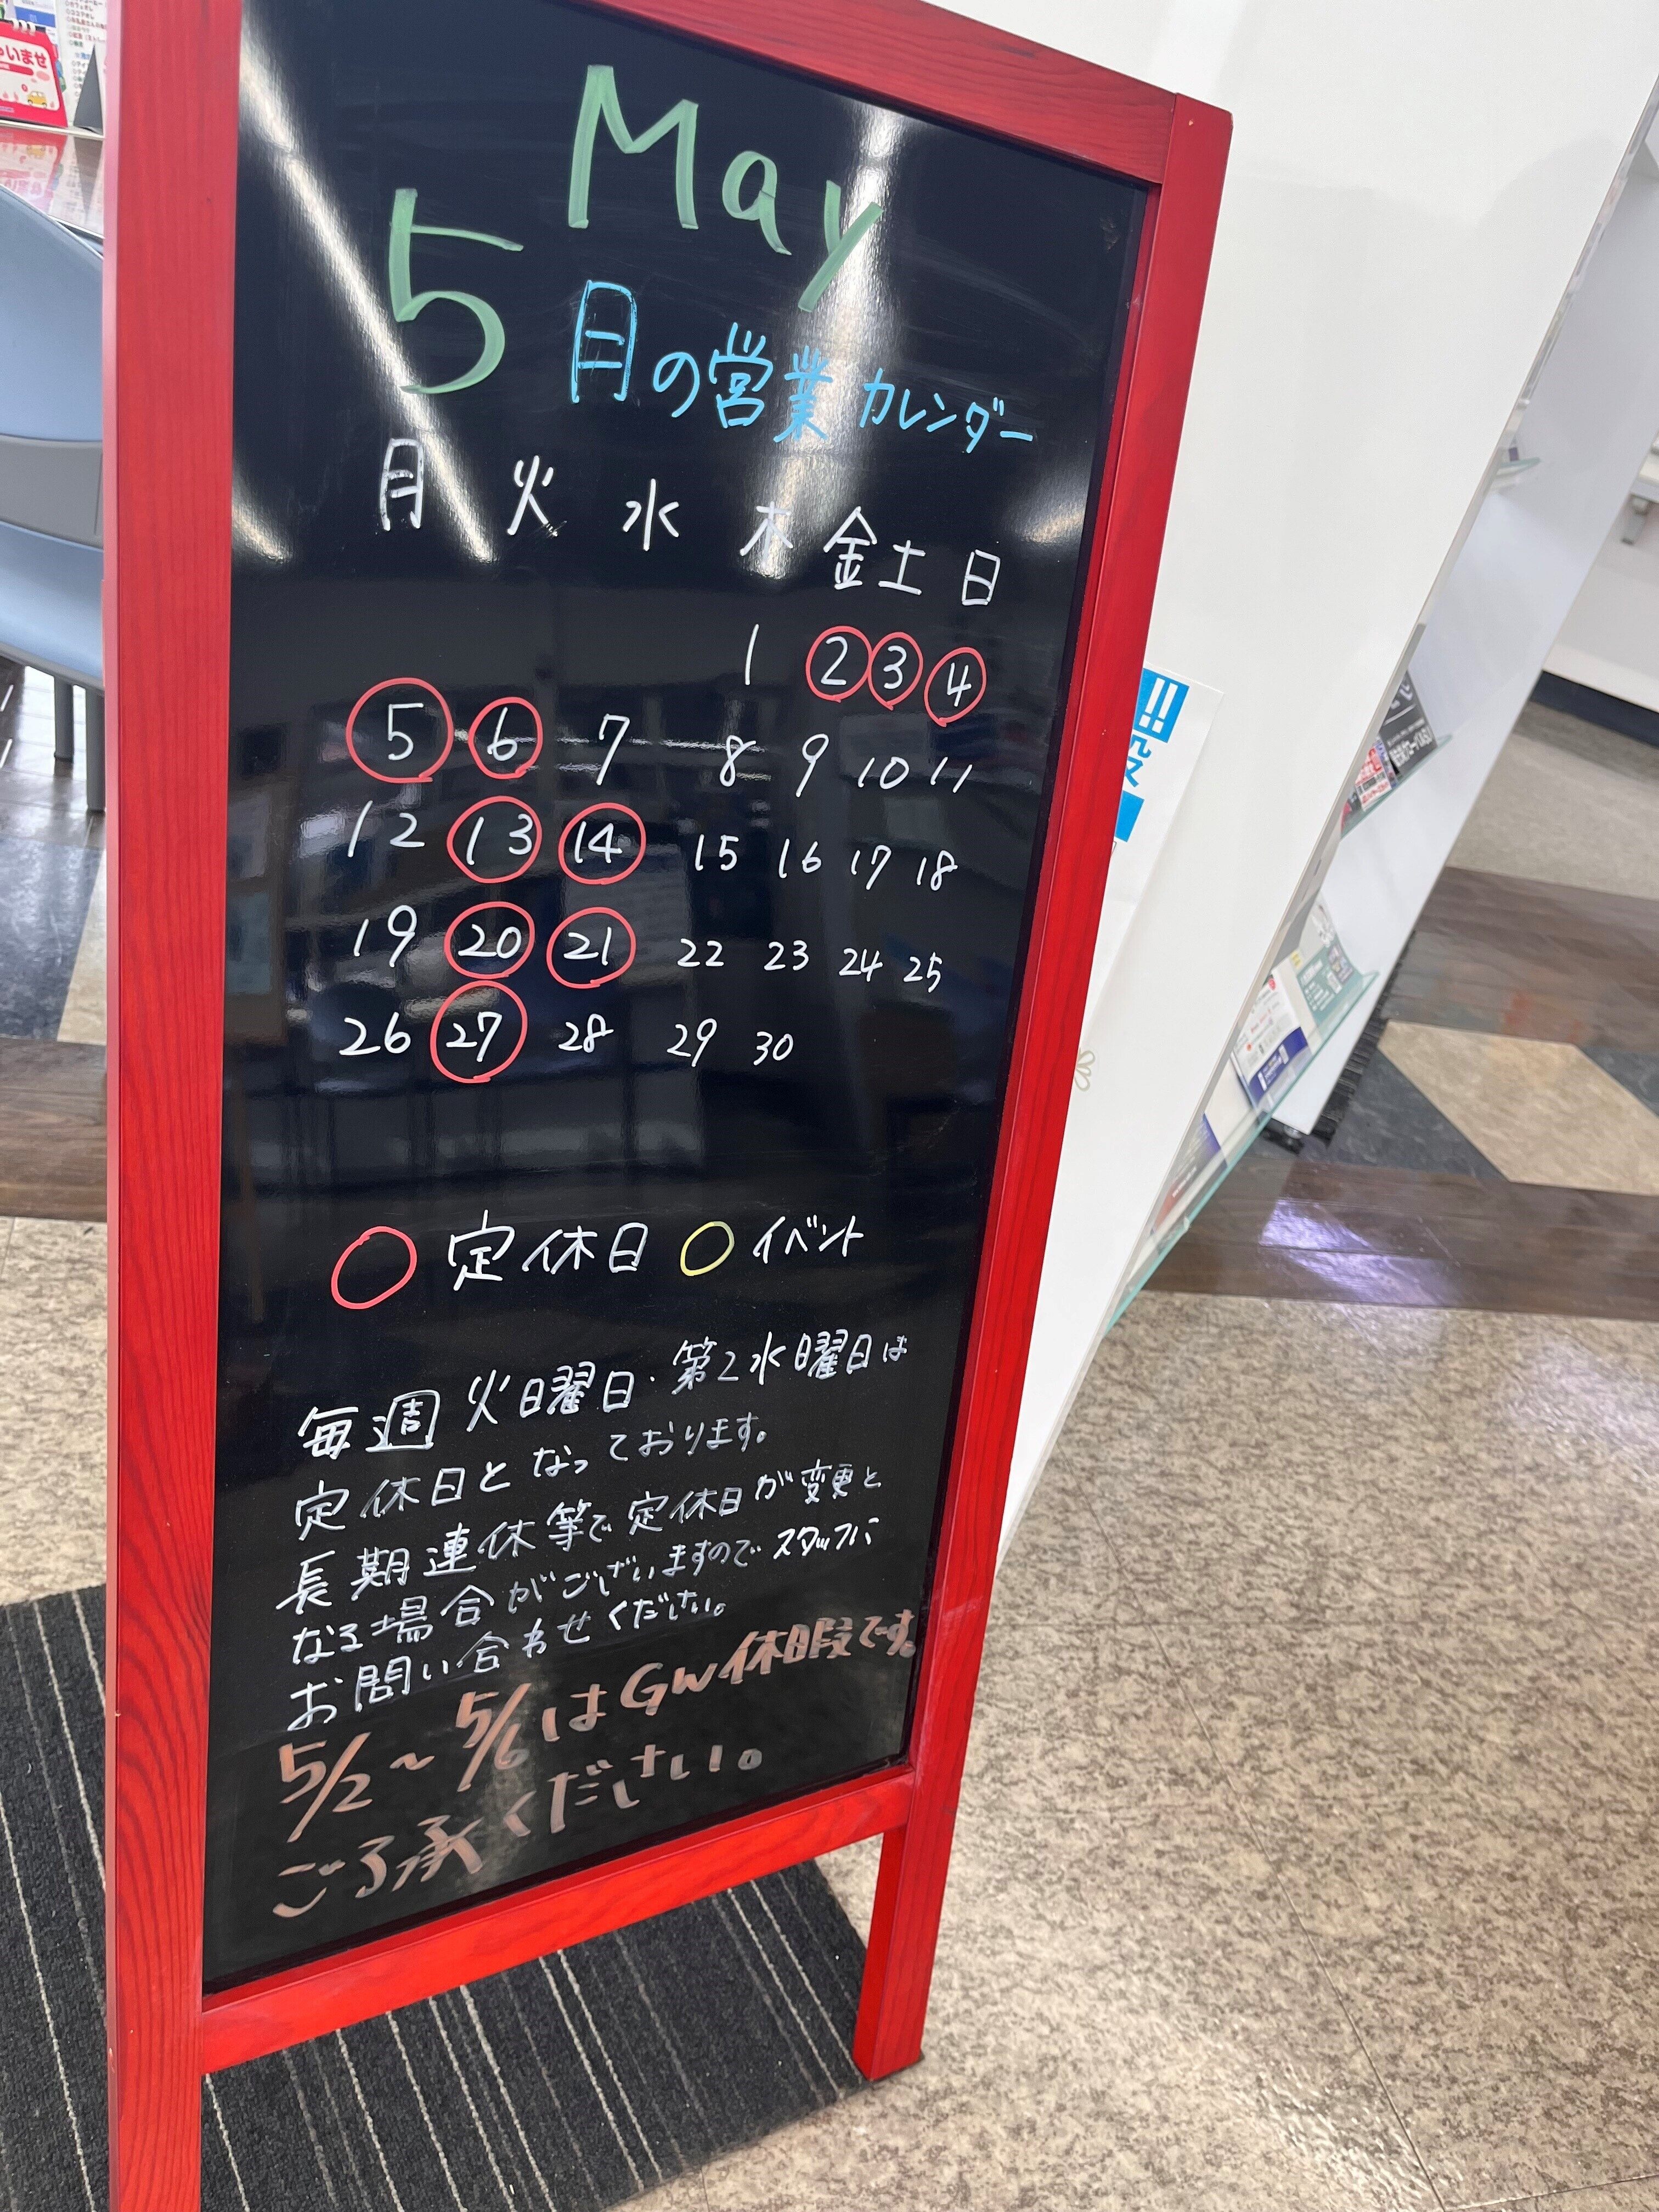 いませ
May
5月の営業カレンダー
月 火 水 木 金 土 日
1 2 3 4
5 6 7 8 9 10 11
12 13 14 15 16 17 18
19 20 21 22 23 24 25
26 27 28 29 30
定休日 イベント
毎週 火曜日・第2水曜日は
定休日となっております。
長期連休等で定休日が変更と
なる場合がございますのでスタッフに
お問い合わせください。
5/2〜5/6はGW休暇です。
ご了承ください。
!!